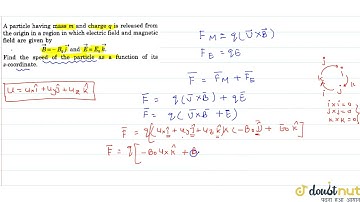 A particle having mass m and charge q is released from
the origin in a region in which electric field and magnetic
field are given by
B⃗ = −B₀ j⃗ and E⃗ = E₀ k⃗.
Find the speed of the particle as a function of its
z-coordinate.
u⃗ = uxî + uyĵ + uz k̂
F_M = q(v̄×B̄)
F_E = qE
F̄ = F̄_M + F̄_E
F̄ = q(v̄×B̄) + qĒ
F̄ = q(v̄×B̄ + Ē)
F̄ = q[uxî + uyĵ + uz k̂ × (−B₀ĵ) + E₀k̂]
F̄ = q[−B₀ux k̂ +
j × j = 0
k × k = 0
doubtnut